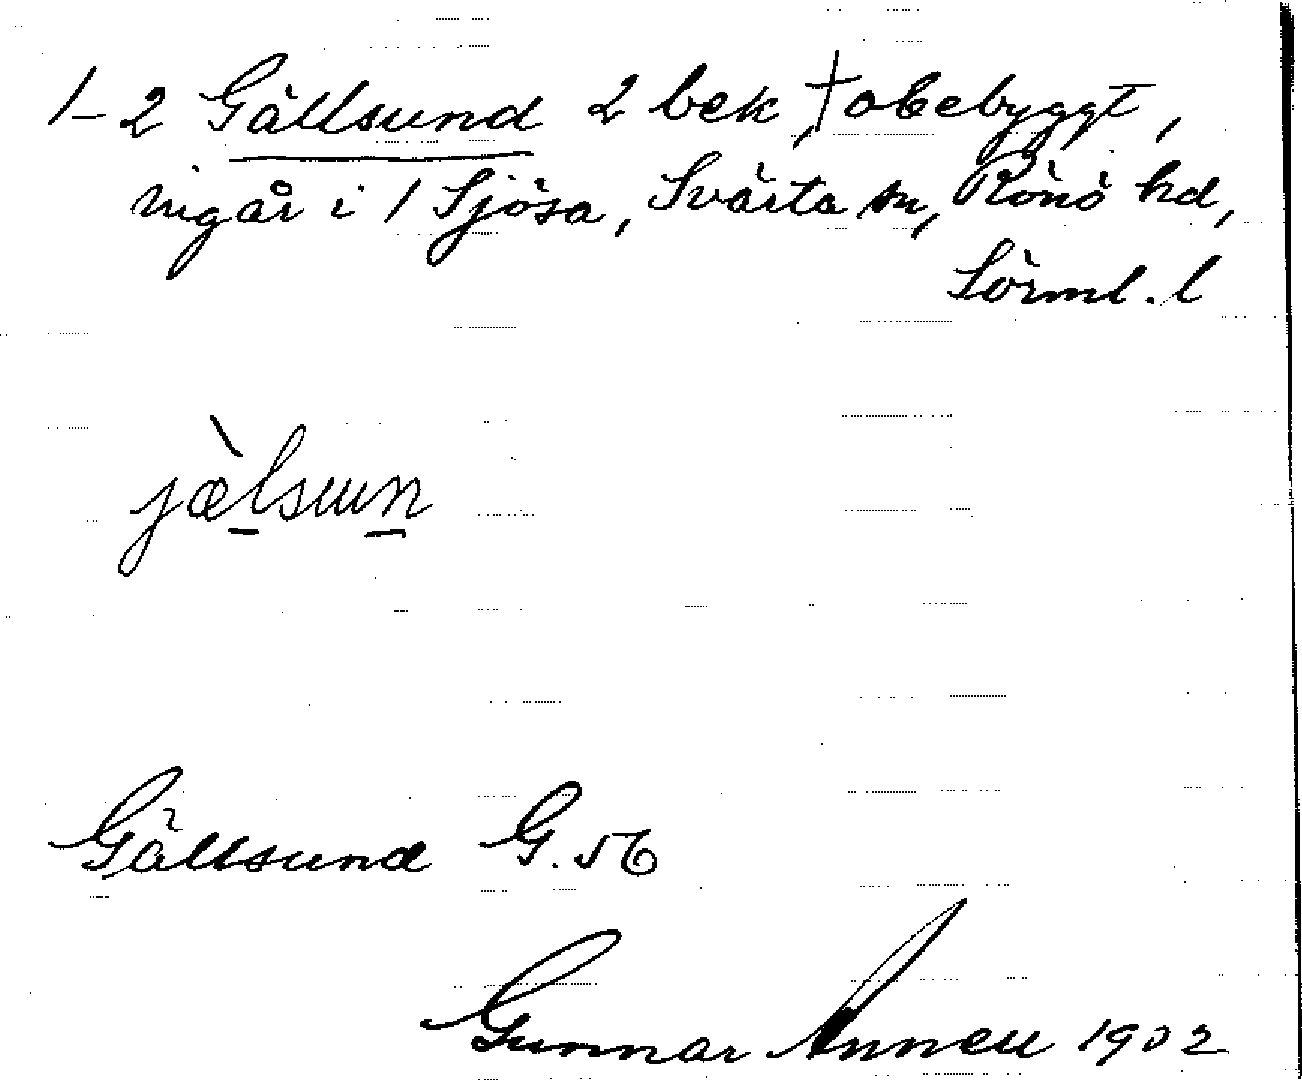 1-2 Gällsund 2 bek, † obebyggt,
ingår i 1 Sjösa, Svärta sn, Rönö hd,
Sörml. l
jæ̀lsun
Gällsund G. 56
Gunnar Annell 1902